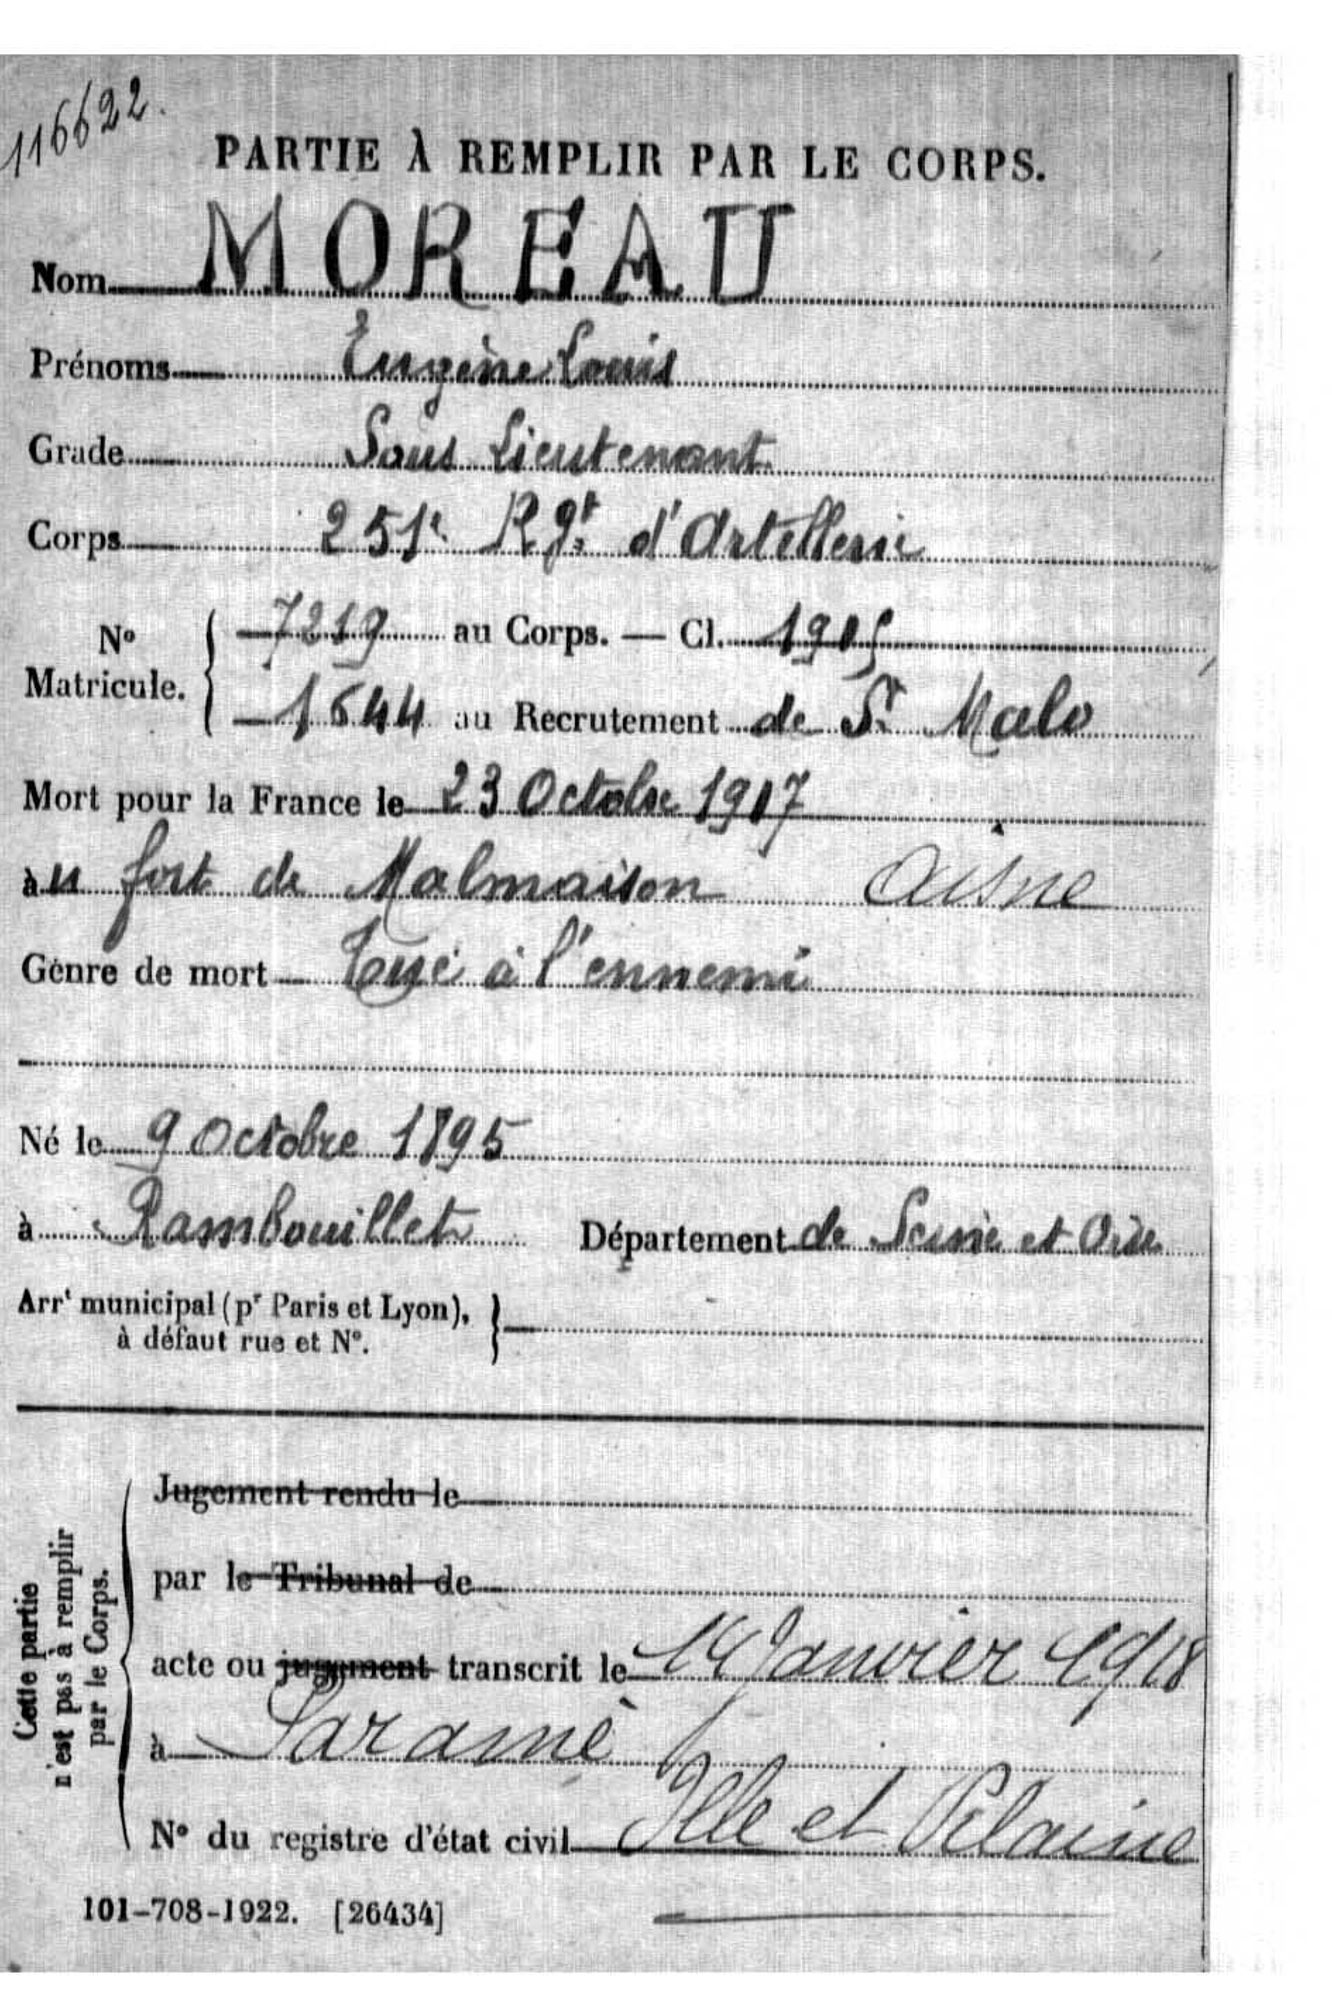 116622.
PARTIE À REMPLIR PAR LE CORPS.
Nom MOREAU
Prénoms Eugène Louis
Grade Sous Lieutenant
Corps 251e Rgt d'Artellerie
No Matricule. { 7219 au Corps. — Cl. 1915
1644 au Recrutement de St Malo
Mort pour la France le 23 Octobre 1917
àu fort de Malmaison Aisne
Genre de mort Tué à l'ennemi
Né le 9 Octobre 1895
à Rambouillet Département de Seine et Oise
Arrt municipal (pr Paris et Lyon), }
à défaut rue et N°.
Cette partie
n'est pas à remplir
par le Corps.
Jugement rendu le
par le Tribunal de
acte ou jugement transcrit le 14 Janvier 1918
à Paramé
N° du registre d'état civil Ille et Vilaine
101-708-1922. [26434]